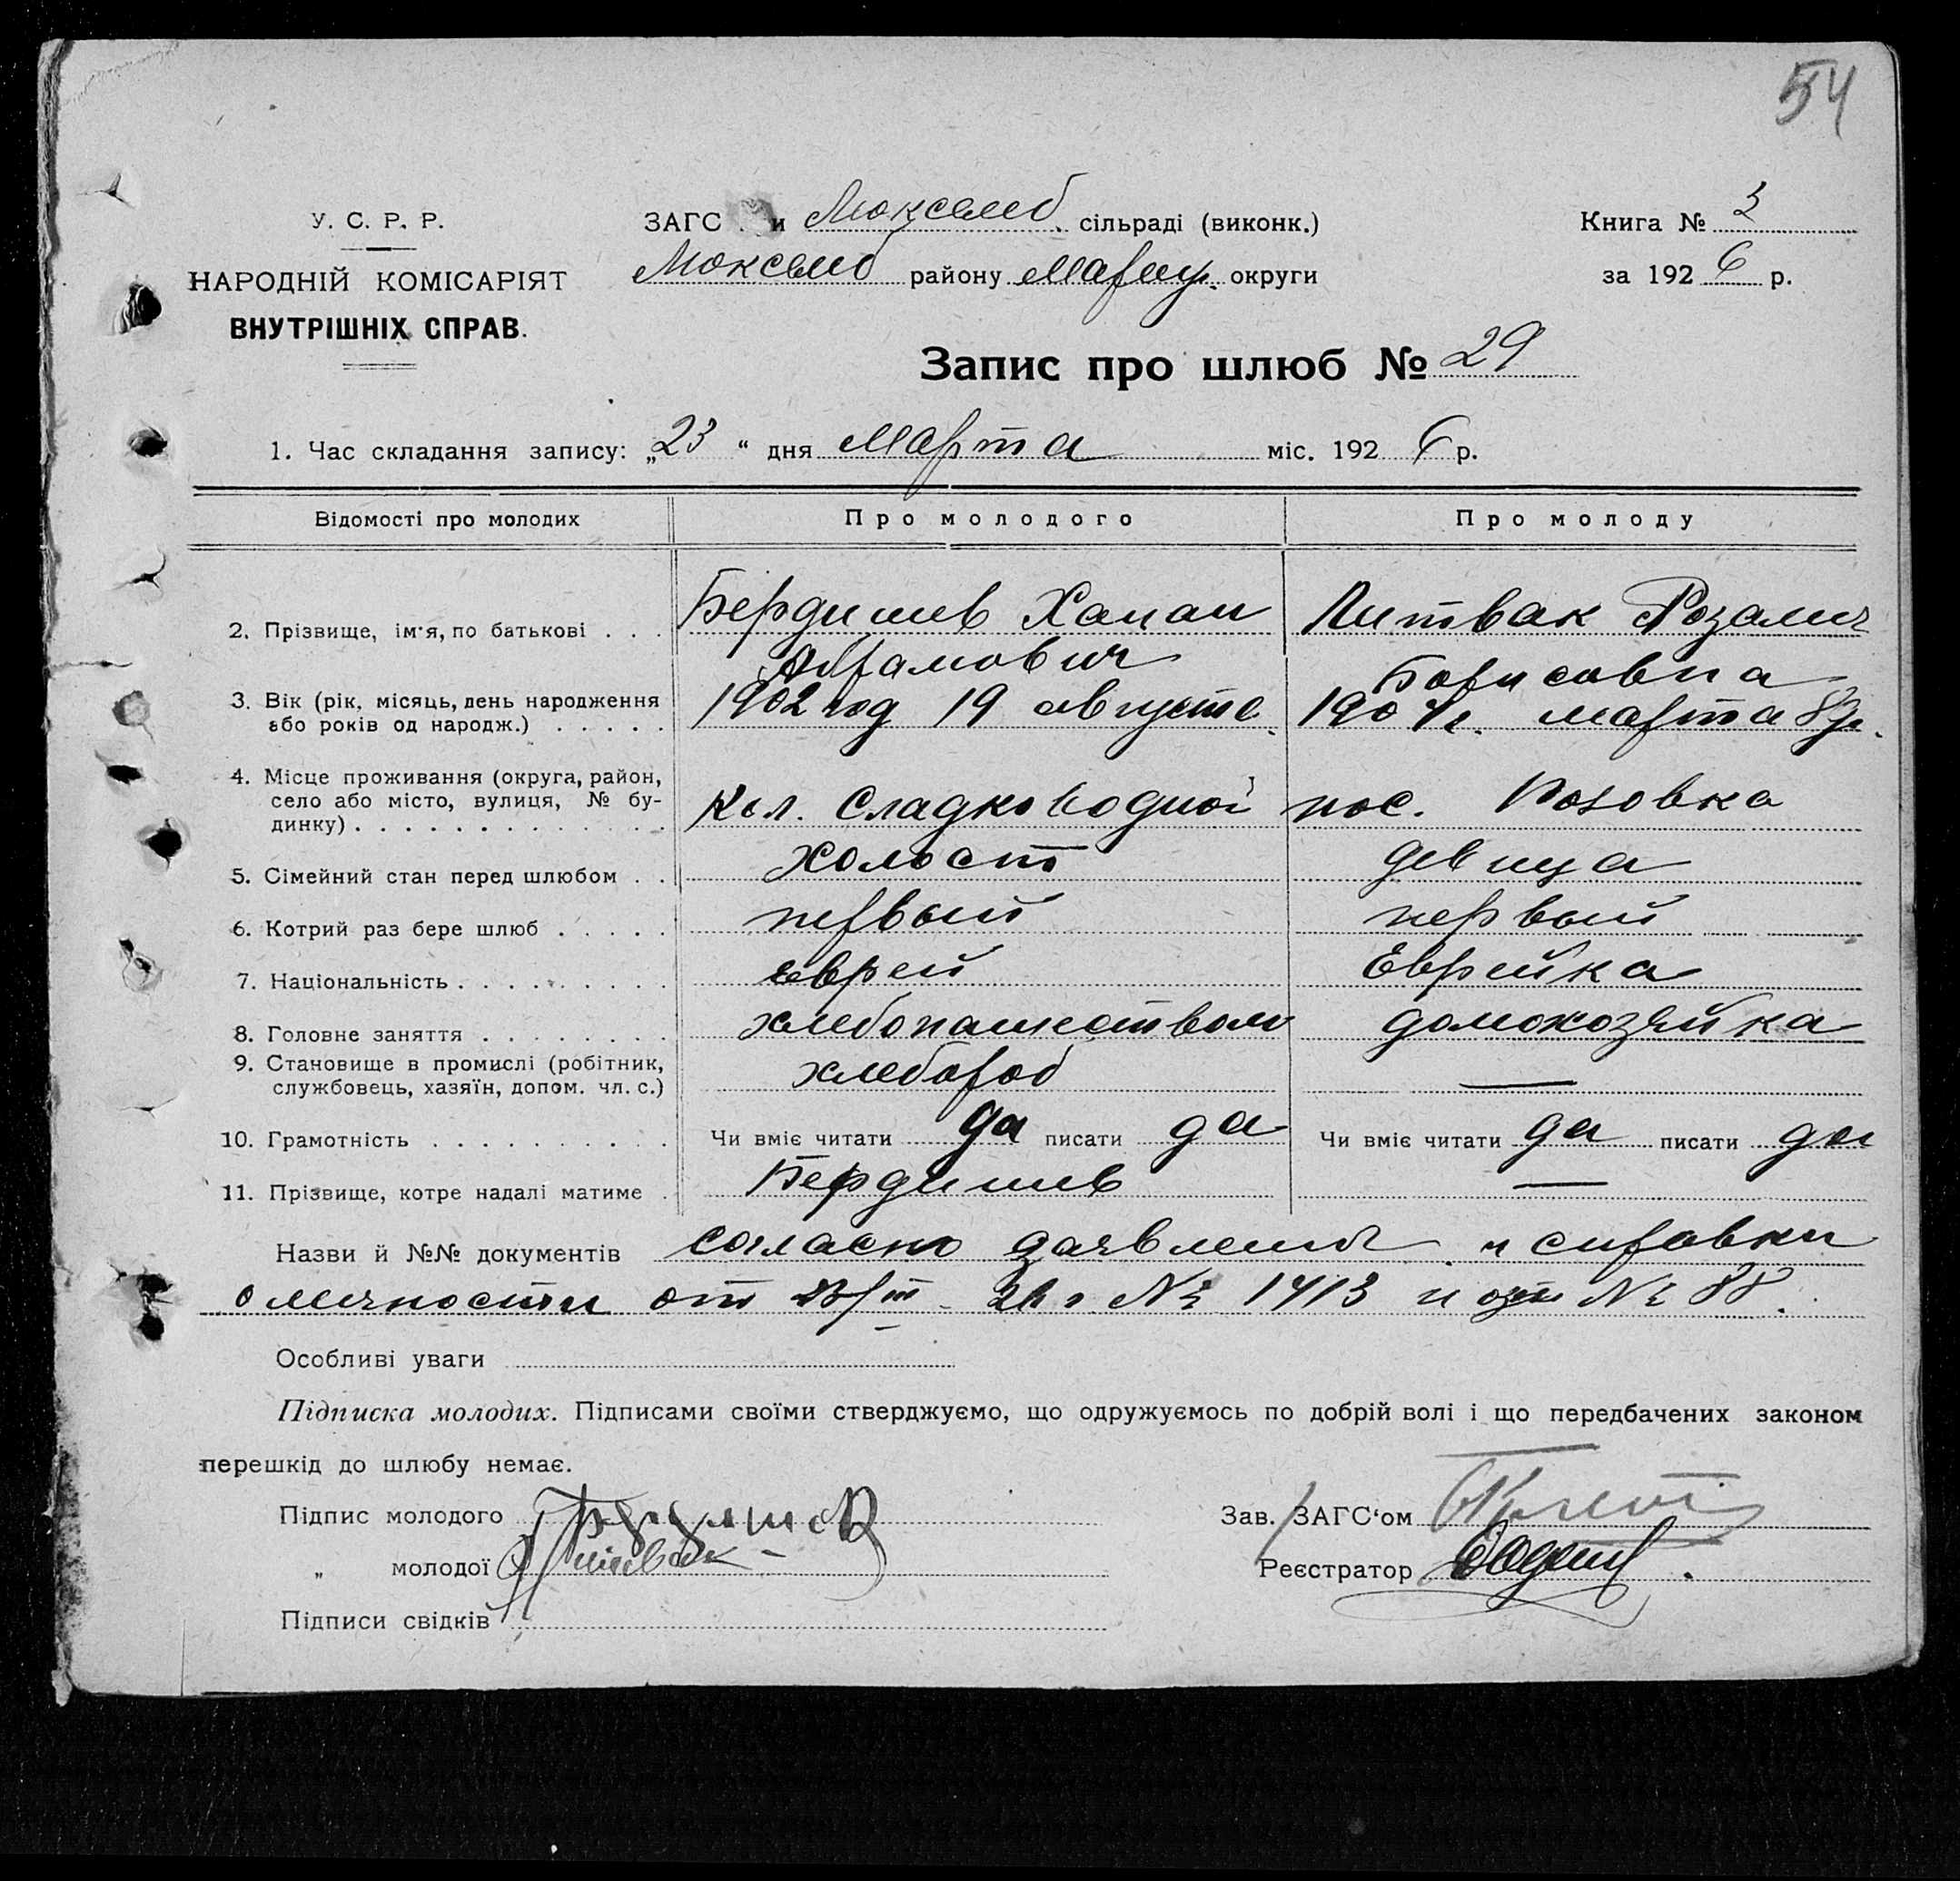 54
У. С. Р. Р.
НАРОДНІЙ КОМІСАРІЯТ
ВНУТРІШНІХ СПРАВ.
ЗАГС и сільраді (виконк.)
району Мариуп. округи
Книга № 3
за 1926 р.
Запис про шлюб № 29
1. Час складання запису: „23 “ дня Марта міс. 1926 р.
Відомості про молодих Про молодого Про молоду
2. Прізвище, ім'я, по батькові . . . Бердишев Ханан Литвак Розалия
Абрамович Борисовна
3. Вік (рік, місяць, день народження 1902 год 19 августа 1904 г. марта 8 д.
або років од народж.) . . . . .
4. Місце проживання (округа, район,
село або місто, вулиця, № бу-
динку) . . . . . . . . . . . . . Кол. Сладководной пос. Розовка
5. Сімейний стан перед шлюбом . . холост девица
6. Котрий раз бере шлюб . . . . . первый первый
7. Національність . . . . . . . . . еврей Еврейка
8. Головне заняття . . . . . . . . хлебопашеством домохозяйка
9. Становище в промислі (робітник,
службовець, хазяїн, допом. чл. с.) хлебороб —
10. Грамотність . . . . . . . . . . Чи вміє читати да писати да Чи вміє читати да писати да
11. Прізвище, котре надалі матиме . Бердишев —
Назви й №№ документів согласно заявления и справки
о личности от 23/III 26 г. № 1413 и № 88.
Особливі уваги
Підписка молодих. Підписами своїми стверджуємо, що одружуємось по добрій волі і що передбачених законом
перешкід до шлюбу немає.
Підпис молодого Бердишев
„ молодої Р Литвак
Підписи свідків
Зав. ЗАГС‘ом
Реєстратор